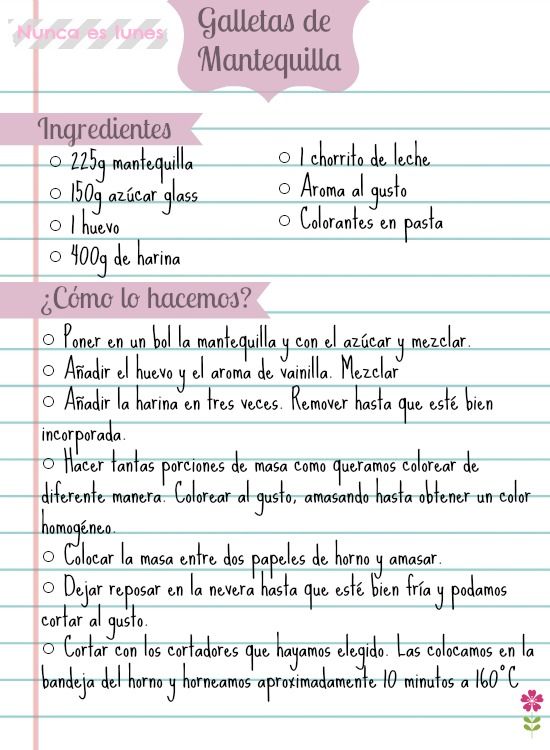 Nunca es lunes
Galletas de
Mantequilla
Ingredientes
225g mantequilla
150g azúcar glass
1 huevo
400g de harina
1 chorrito de leche
Aroma al gusto
Colorantes en pasta
¿Cómo lo hacemos?
Poner en un bol la mantequilla y con el azúcar y mezclar.
Añadir el huevo y el aroma de vainilla. Mezclar
Añadir la harina en tres veces. Remover hasta que esté bien
incorporada.
Hacer tantas porciones de masa como queramos colorear de
diferente manera. Colorear al gusto, amasando hasta obtener un color
homogéneo.
Colocar la masa entre dos papeles de horno y amasar.
Dejar reposar en la nevera hasta que esté bien fría y podamos
cortar al gusto.
Cortar con los cortadores que hayamos elegido. Las colocamos en la
bandeja del horno y horneamos aproximadamente 10 minutos a 160°C